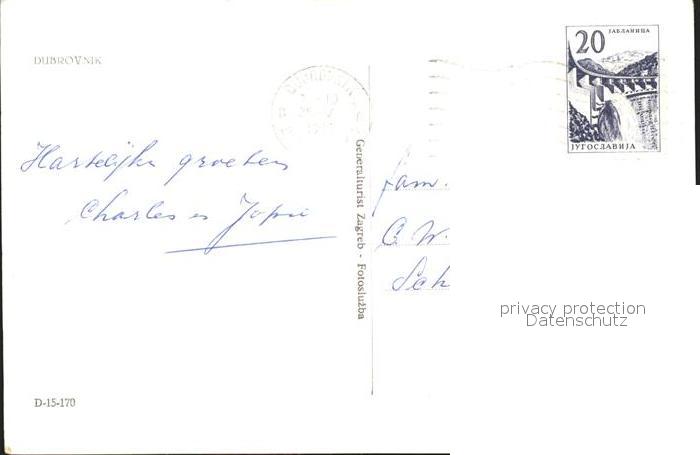 DUBROVNIK
Hartelijke groeten
Charles en Jopie
D-15-170
Generalturist Zagreb - Fotoslužba
20 ЈАБЛАНИЦА
ЈУГОСЛАВИЈА
fam.
C. W.
Sch
privacy protection
Datenschutz